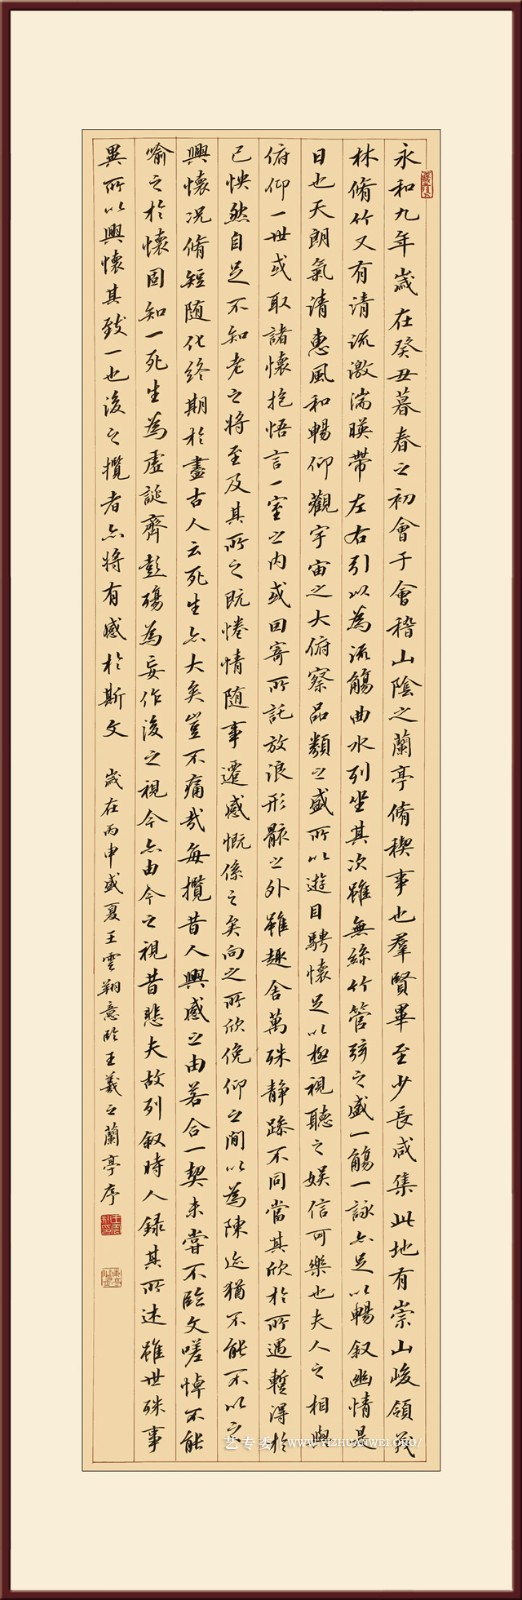 永和九年歲在癸丑暮春之初會于會稽山陰之蘭亭脩稧事也羣賢畢至少長咸集此地有崇山峻領茂
林脩竹又有清流激湍暎帶左右引以為流觴曲水列坐其次雖無絲竹管弦之盛一觴一詠亦足以暢叙幽情是
日也天朗氣清惠風和暢仰觀宇宙之大俯察品類之盛所以遊目騁懷足以極視聽之娛信可樂也夫人之相與
俯仰一世或取諸懷抱悟言一室之內或因寄所託放浪形骸之外雖趣舍萬殊静躁不同當其欣於所遇暫得於
己怏然自足不知老之將至及其所之既惓情随事遷感慨係之矣向之所欣俛仰之間以為陳迹猶不能不以之
興懷况脩短随化終期於盡古人云死生亦大矣豈不痛哉每攬昔人興感之由若合一契未嘗不臨文嗟悼不能
喻之於懷固知一死生為虛誕齊彭殤為妄作後之視今亦由今之視昔悲夫故列叙時人錄其所述雖世殊事
異所以興懷其致一也後之攬者亦將有感於斯文 歲在丙申盛夏王雲翔意臨王羲之蘭亭序